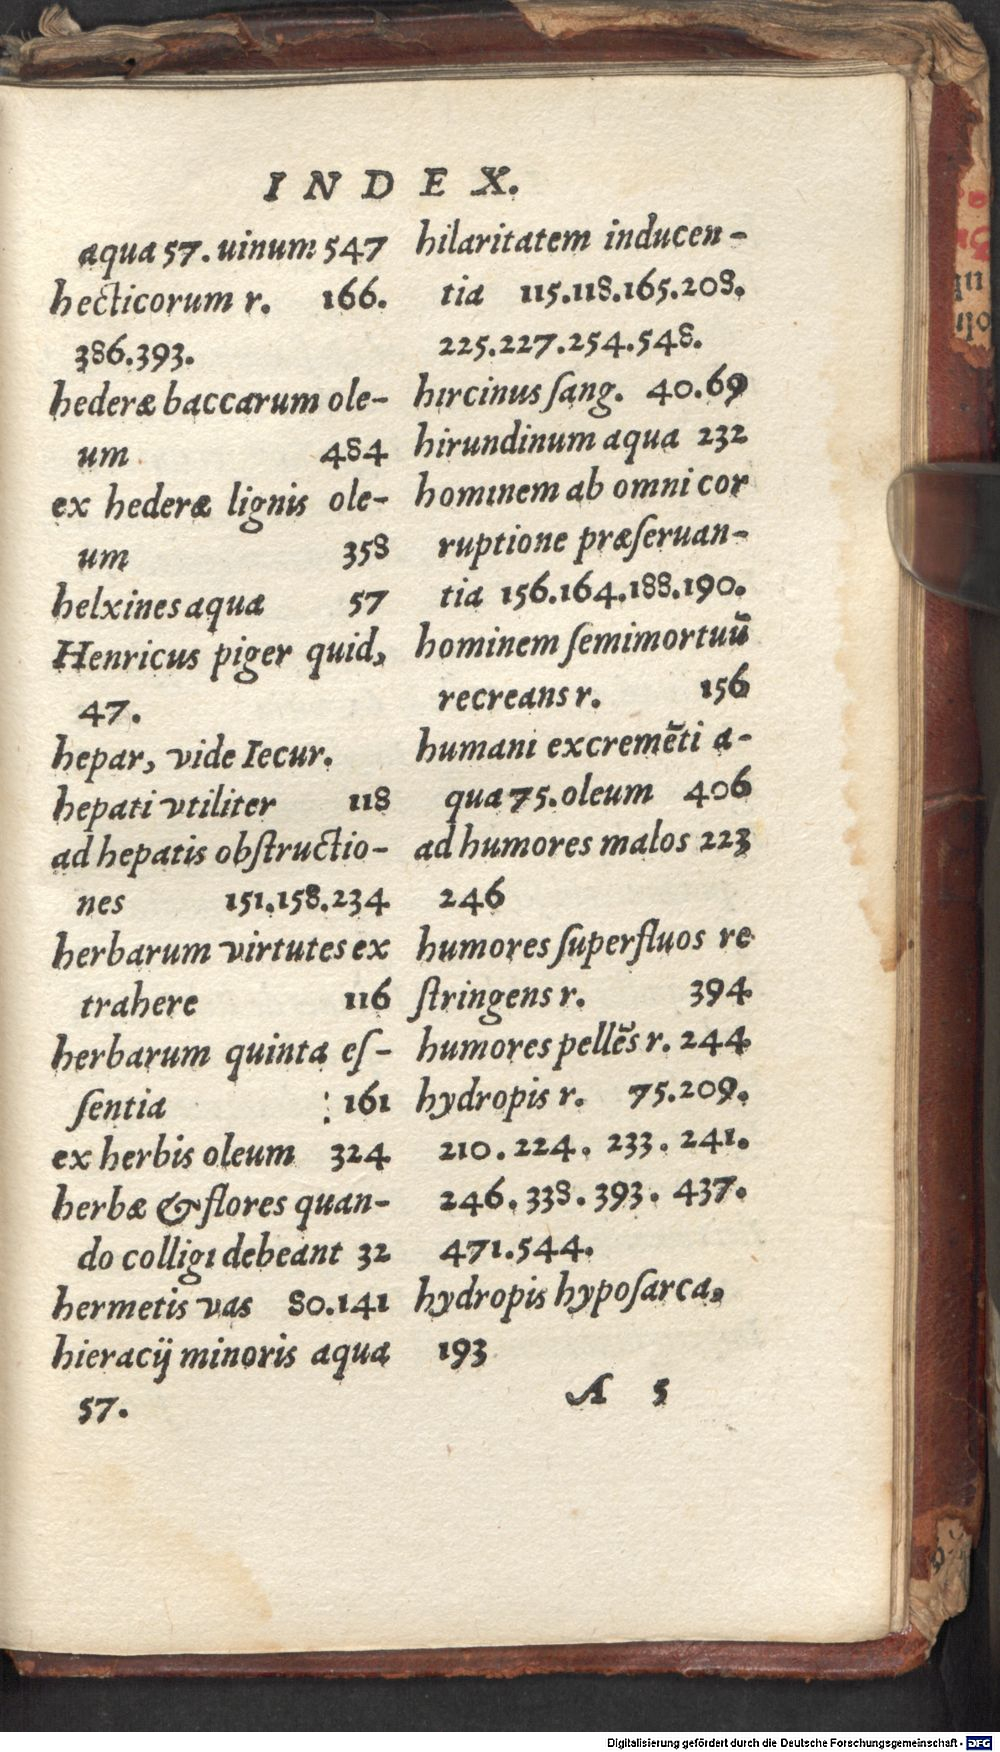 INDEX.
aqua 57. uinum 547
hecticorum r. 166.
386.393.
hederæ baccarum ole-
um 484
ex hederæ lignis ole-
um 358
helxines aqua 57
Henricus piger quid,
47.
hepar, vide Iecur.
hepati vtiliter 118
ad hepatis obſtructio-
nes 151.158.234
herbarum virtutes ex
trahere 116
herbarum quinta eſ-
ſentia : 161
ex herbis oleum 324
herbæ & flores quan-
do colligi debeant 32
hermetis vas 80.141
hieracij minoris aqua
57.
hilaritatem inducen-
tia 115.118.165.208.
225.227.254.548.
hircinus ſang. 40.69
hirundinum aqua 232
hominem ab omni cor
ruptione præſeruan-
tia 156.164.188.190.
hominem ſemimortuū
recreans r. 156
humani excremēti a-
qua 75. oleum 406
ad humores malos 223
246
humores ſuperfluos re
ſtringens r. 394
humores pellēs r. 244
hydropis r. 75.209.
210. 224. 233. 241.
246. 338. 393. 437.
471.544.
hydropis hypoſarca,
193
A 5
Digitalisierung gefördert durch die Deutsche Forschungsgemeinschaft - DFG